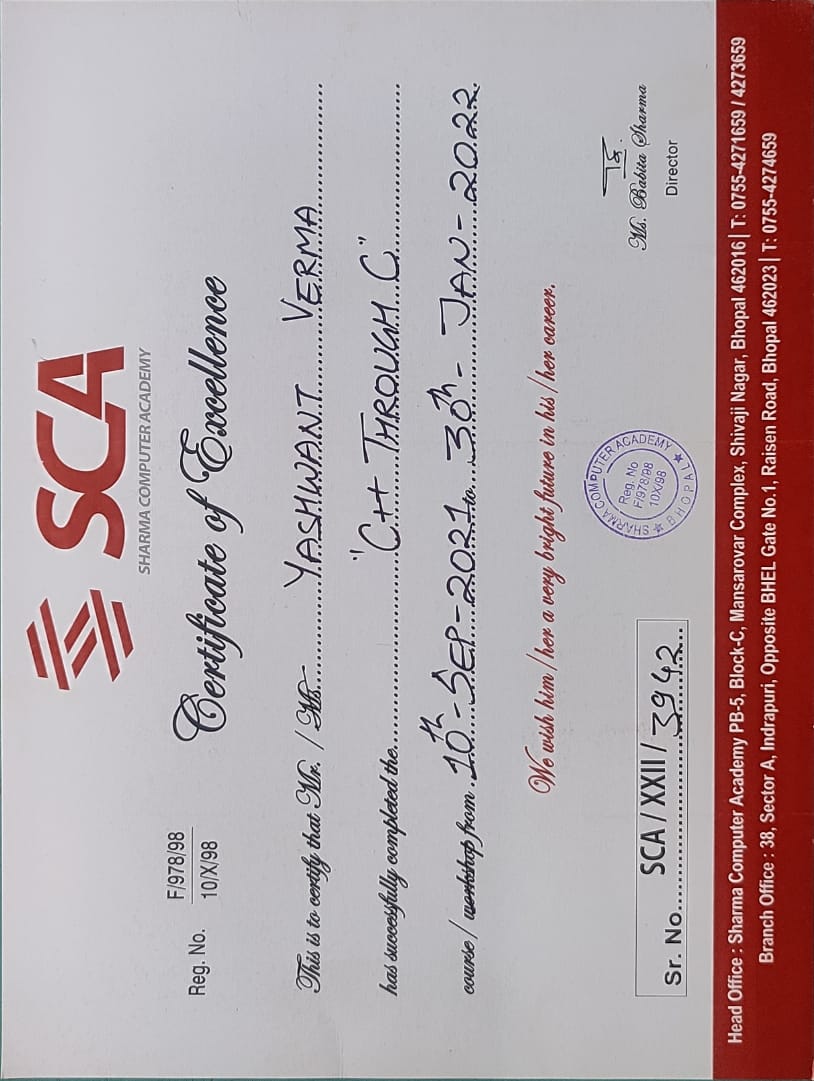 SCA
SHARMA COMPUTER ACADEMY
Reg. No. F/978/98
10/X/98
Certificate of Excellence
This is to certify that Mr. / Ms. YASHWANT VERMA
has successfully completed the "C++ THROUGH C"
course / workshop from 10th-SEP-2021 to 30th-JAN-2022
We wish him / her a very bright future in his / her career.
SHARMA COMPUTER ACADEMY
Reg. No
F/978/98
10X/98
★ BHOPAL ★
Ms. Babita Sharma
Director
SCA / XXII / 3942
Sr. No.
Head Office : Sharma Computer Academy PB-5, Block-C, Mansarovar Complex, Shivaji Nagar, Bhopal 462016 | T: 0755-4271659 / 4273659
Branch Office : 38, Sector A, Indrapuri, Opposite BHEL Gate No.1, Raisen Road, Bhopal 462023 | T: 0755-4274659